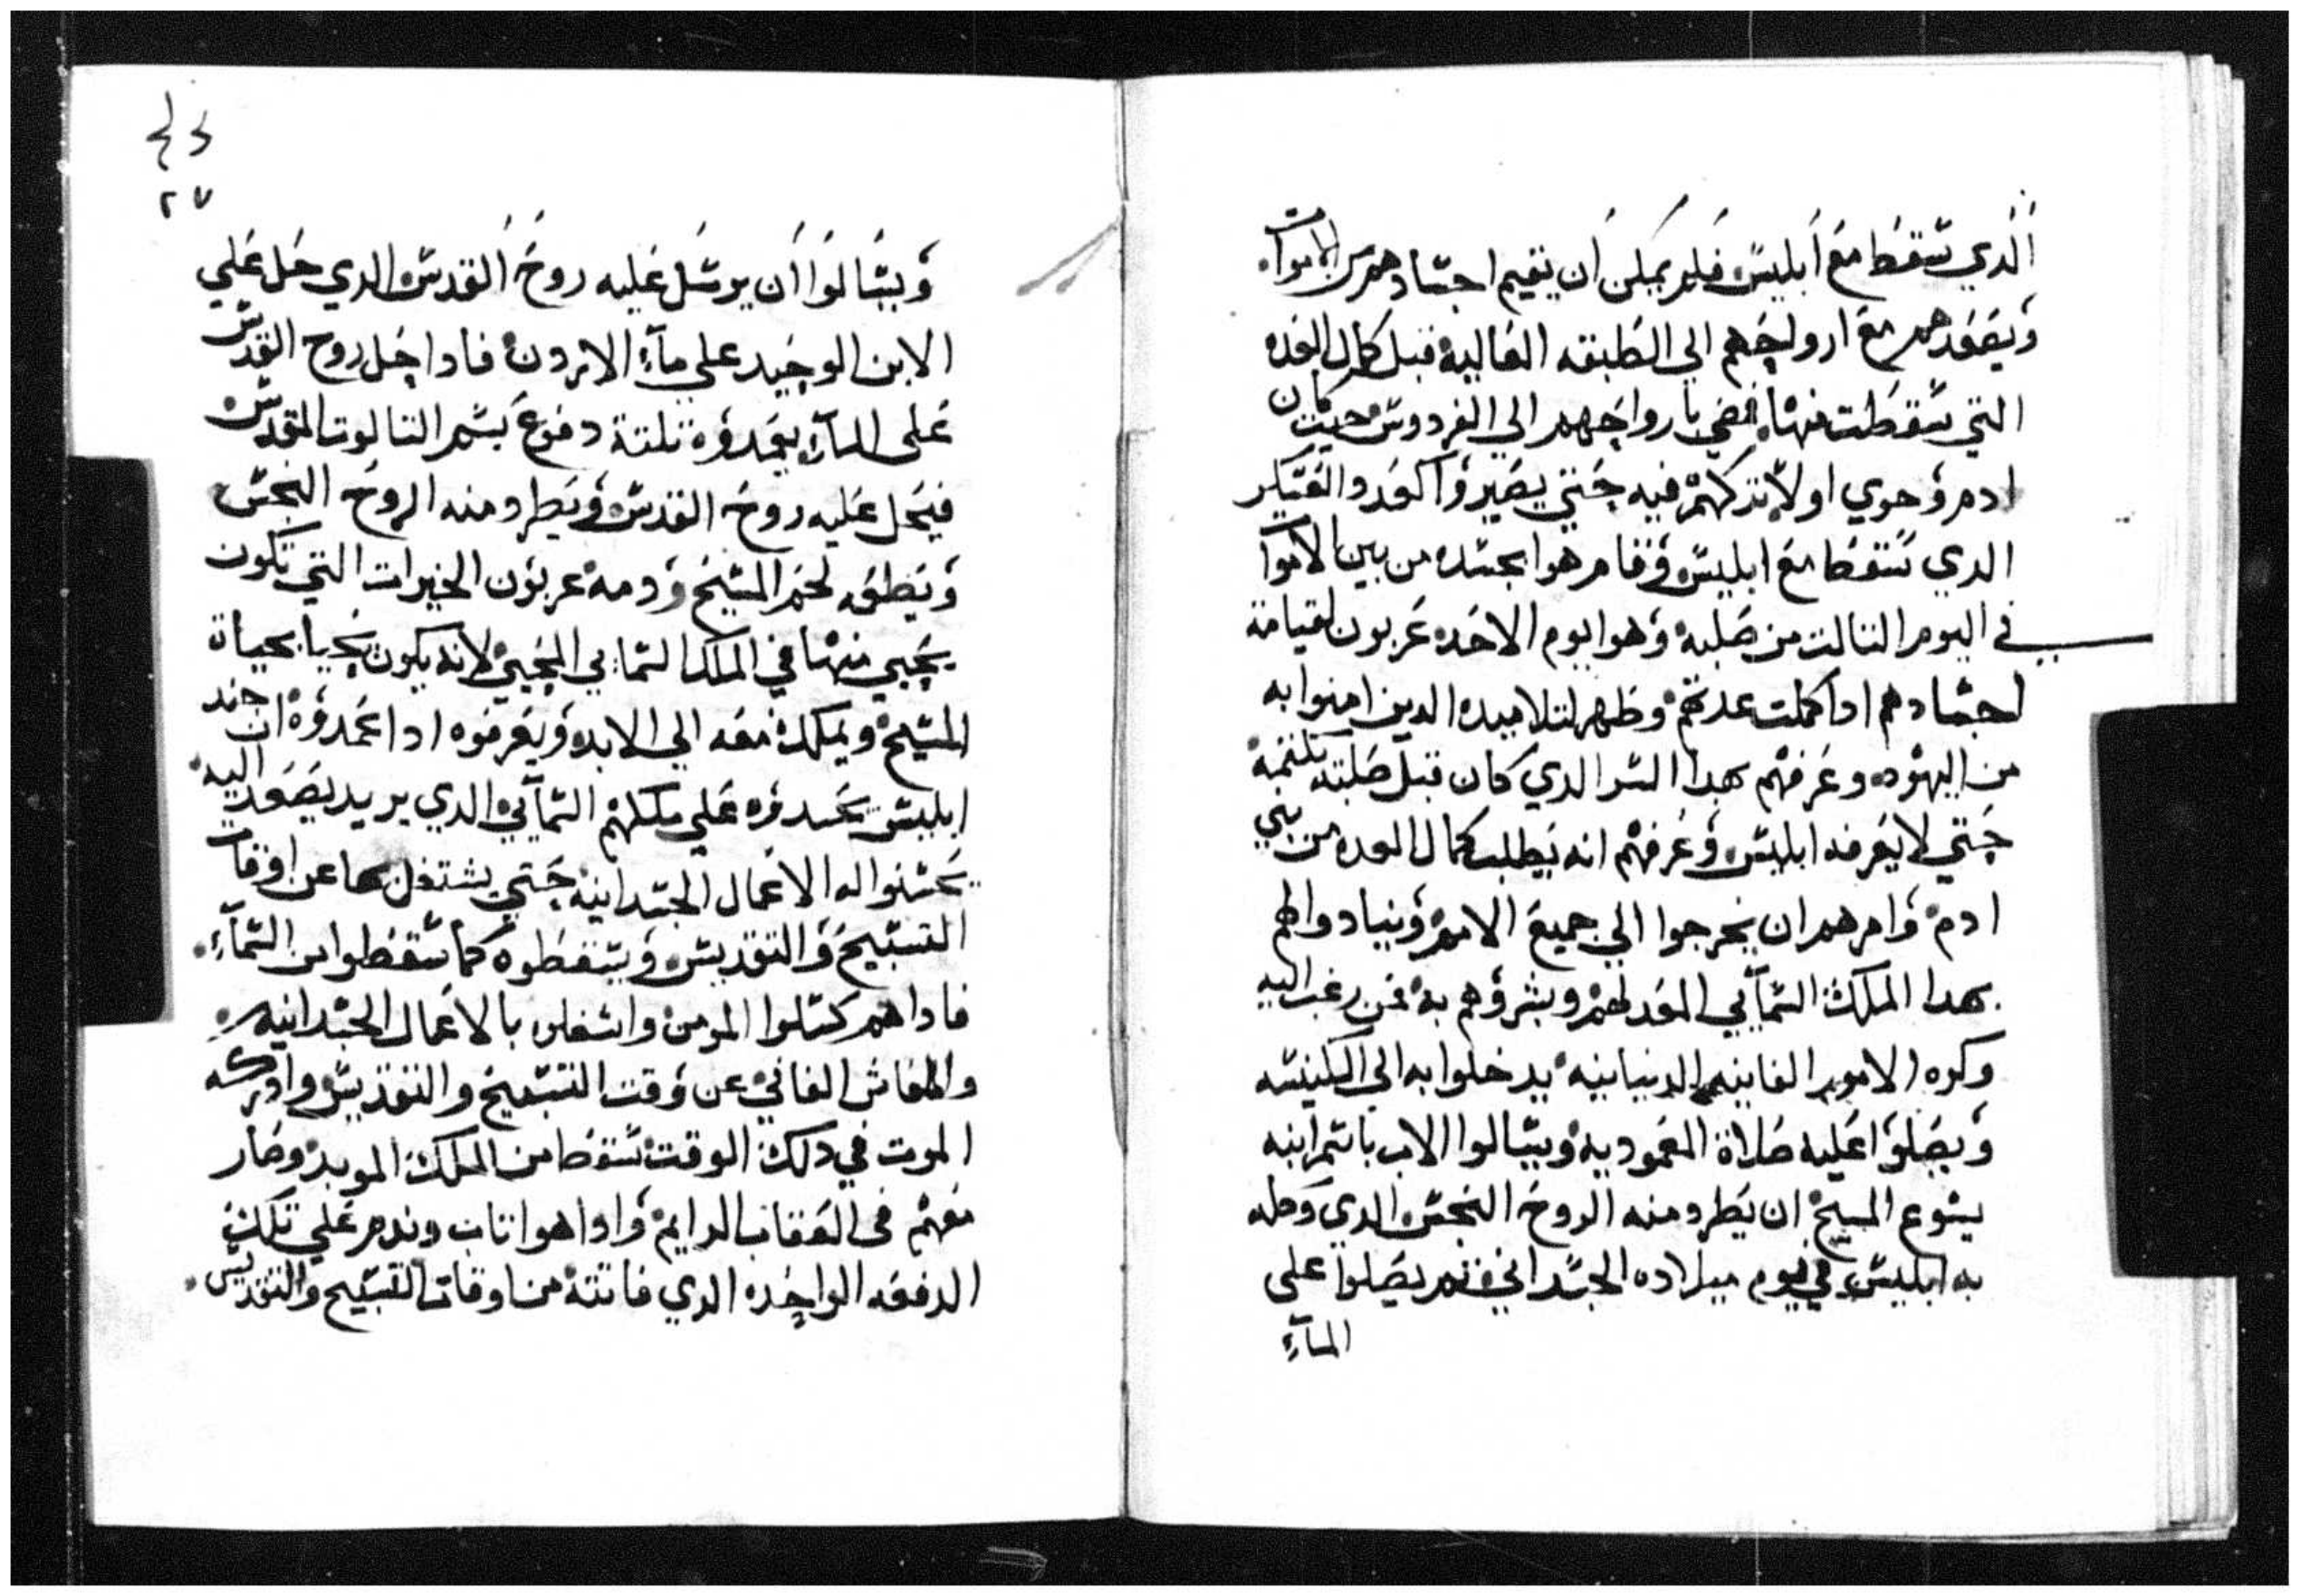 الدي سقط مع ابليس فلم يمكن ان يقيم اجسادهم من الاموات
ويصعدهم مع ارواحهم الي الطبقه العاليه قبل كمال العده
التي سقطت منها فمضي بارواحهم الي الفردوس حيت كان
ادم وحوي اولا تركهم فيه حتي يصير واكعدد العسكر
الدي سقط مع ابليس وقام هوا بجسده من بين الاموا
في اليوم التالت من صلبه وهوا يوم الاحد عربون لقيامة
اجسادهم ادا كملت عدتهم وظهر لتلاميده الدين امنوا به
من اليهود وعرفهم بهدا السر الدي كان قبل صلبته يكتمه
حتي لا يعرفه ابليس وعرفهم انه يطلب كمال العده من بني
ادم وامرهم ان يخرجوا الي جميع الامم وينادوا لهم
بهدا الملك السمآيي المعد لهم ويبشروهم به فمن رغب اليه
وكره الامور الفانيه الدنيانيه يدخلوا به الي الكنيسه
ويصلوا عليه صلاة المعموديه ويسالوا الاب باسم ابنه
يسوع المسيح ان يطرد منه الروح النجس الدي وكله
به ابليس في يوم ميلاده الجسداني تم يصلوا علي
المآء
٢٧
ويسالوا ان يرسل عليه روح القدس الدي حل علي
الابن الوحيد علي مآء الاردن فادا حل روح القدس
علي المآء يعمدوه تلتة دفوع بسم التالوت المقدس
فيحل عليه روح القدس ويطرد منه الروح النجس
ويطعم لحم المسيح ودمه عربون الخيرات التي تكون
يحيي منها في الملك السمايي المحيي لانه يكون يحيا بحياة
المسيح ويملك معه الي الابد ويعرفوه ادا عمدوه ان جند
ابليس يحسدوه علي ملكهم السمآيي الدي يريد يصعد اليه
يحسنوا له الاعمال الجسدانيه حتي يشتغل بها عن اوقات
التسبيح والتقديس ويسقطوه كما سقطوا من السمآء
فاداهم كسلوا المومن واشغلوه بالاعمال الجسدانيه
والمعاش الفاني عن وقت التسبيح والتقديس وادركه
الموت في دلك الوقت سقط من الملك الموبد وصار
معهم في العقاب الدايم وادا هوا تاب وندم علي تلك
الدفعه الواحده الدي فاتته من اوقات التسبيح والتقديس